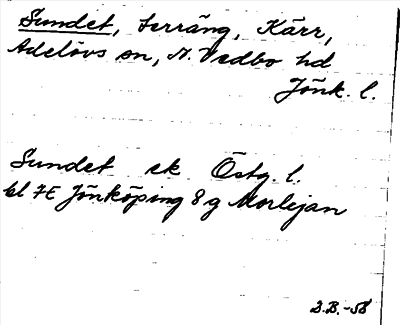 Sundet, terräng, Kärr,
Adelövs sn, N. Vedbo hd
Jönk. l.
Sundet ek Östg. l.
bl 7E Jönköping 8g Morlejan
B.B.-58